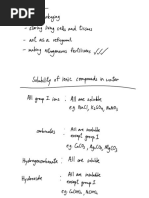 packaging
- storing living cells and tissues
- act as a refrigerant
- making nitrogenous fertilisers
Solubility of ionic compounds in water
All group I ions : All are soluble
eg NaCl, K2SO4, NaNO3
carbonates : All are insoluble
except group I
eg CaCO3, Ag2CO3, MgCO3
Hydrogencarbonates : All are soluble
Hydroxide : All are insoluble
except group I